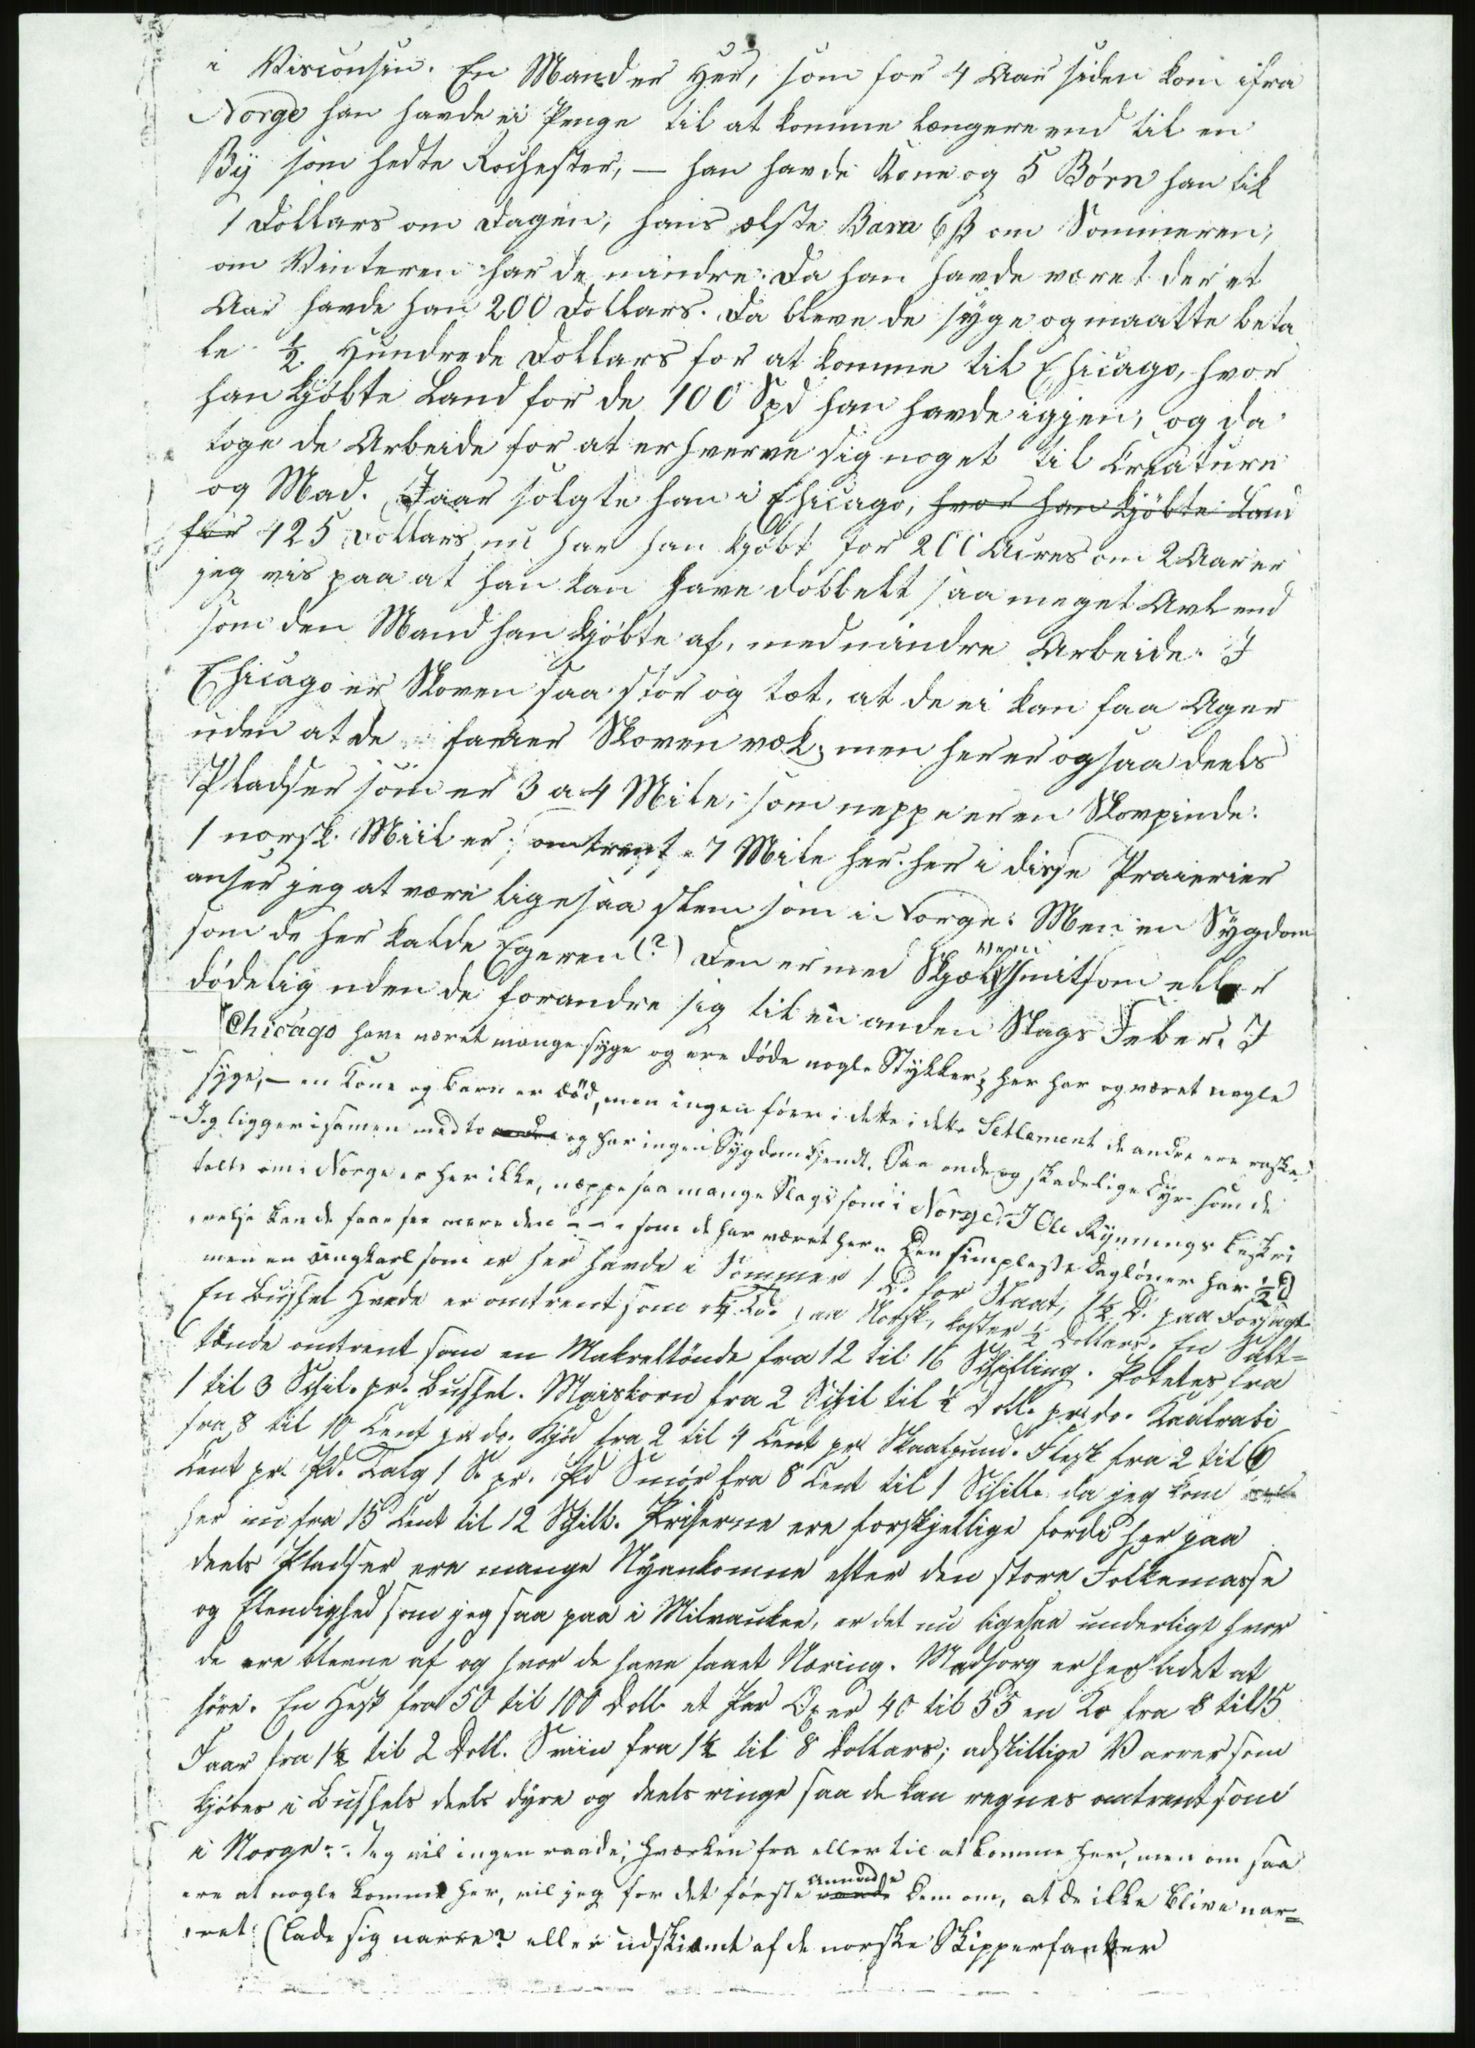 i Visconsin. En Mand er her, som for 4 Aar siden kom ifra
Norge han havde ei Penge til at komme længere end til en
By som hedte Rochester, — han havde Kone og 5 Børn han fik
1 Dollars om Dagen, hans ælste Barn 6 ß om Sommeren,
om Vinteren har de mindre. Da han havde været der et
Aar havde han 200 Dollars. Da bleve de syge og maatte beta
le ½ Hundrede Dollars for at komme til Chicago, hvor
han kjøbte Land for de 100 Spd han havde igjen, og da
toge de Arbeide for at erhverve sig noget til Creature
og Mad. Iaar solgte han i Chicago, hvor han kjøbte Land
for 425 Dollars nu har han kjøbt for 200 Acres om 2 Aar er
jeg vis paa at han kan have dobbelt saa meget Avl end
som den Mand han kjøbte af, med mindre Arbeide. I
Chicago er Skoven saa stor og tæt, at de ei kan faa Ager
uden at de Skoven væk, men her er ogsaa deels
Pladser som er 3 a 4 Mile, som neppe er en Skovpinde.
1 norsk Miil er omtrent 7 Mile her. her i disse Praierier
anser jeg at være ligesaa slem som i Norge. Men en Sygdom
som de her kalde Egeren (?) Den er med smitsom eller
dødelig uden de forandre sig til en anden Slags Feber. I
Chicago have været mange syge og ere døde nogle Stykker, her har og været nogle
syge, — en Kone og Barn er død, men ingen føer i dette i dette Setlement de andre ere raske.
Jeg ligger isamen med to andre og har ingen Sygdom kjendt. Saa onde og skadelige Dyr som de
talte om i Norge er her ikke, næppe saa mange Slags som i Norge. I Ole Rynnings beskri
velse kan de faae see mere den - - - som de har været her. Den simpleste Dagløner har ½ D
men en Ungkarl som er her havde i Sommer 1 D. for Slaat, 1½ D. paa
En Bushel Hvede er omtrent som ¼ To. paa Norsk, koster ½ Dollars. En Salt-
tønde omtrent som en Makreltønde fra 12 til 16 Schilling. Potetes fra
1 til 3 Schil. pr. Bushel. Maiskorn fra 2 Schil til ½ Doll. pr. do. Kaalrabi
fra 8 til 10 Cent pr do. Kjød fra 2 til 4 Cent pr Skaalpund. Flesk fra 2 til 6
Cent pr. Pd. Talg 1 S. pr. Pd Smør fra 8 Cent til 1 Schill. da jeg kom
her nu fra 15 Cent til 12 Schill. Priserne ere forskjellige fordi her paa
deels Pladser ere mange Nyankomne efter den store Folkemasse
og Elendighed som jeg saa paa i Milvaukee, er det nu ligesaa underligt hvor
de ere blevne af og hvor de have faaet Næring. Madsorg er her lidet at
høre. En Hest fra 50 til 100 Doll. et Par Oxer 40 til 55 en Ko fra 8 til 15
Faar fra 1½ til 2 Doll. Sviin fra 1½ til 8 Dollars; adskillige Varrer som
kjøbes i Bushels deels dyre og deels ringe saa de kan regnes omtrent som
i Norge. - Jeg vil ingen raade, hværken fra eller til at komme her, men om saa
ere at nogle komme her, vil jeg for det første anmode Dem om, at de ikke blive nar-
ret (lade sig narre? eller udskiæmt af de norske Skipperfanker